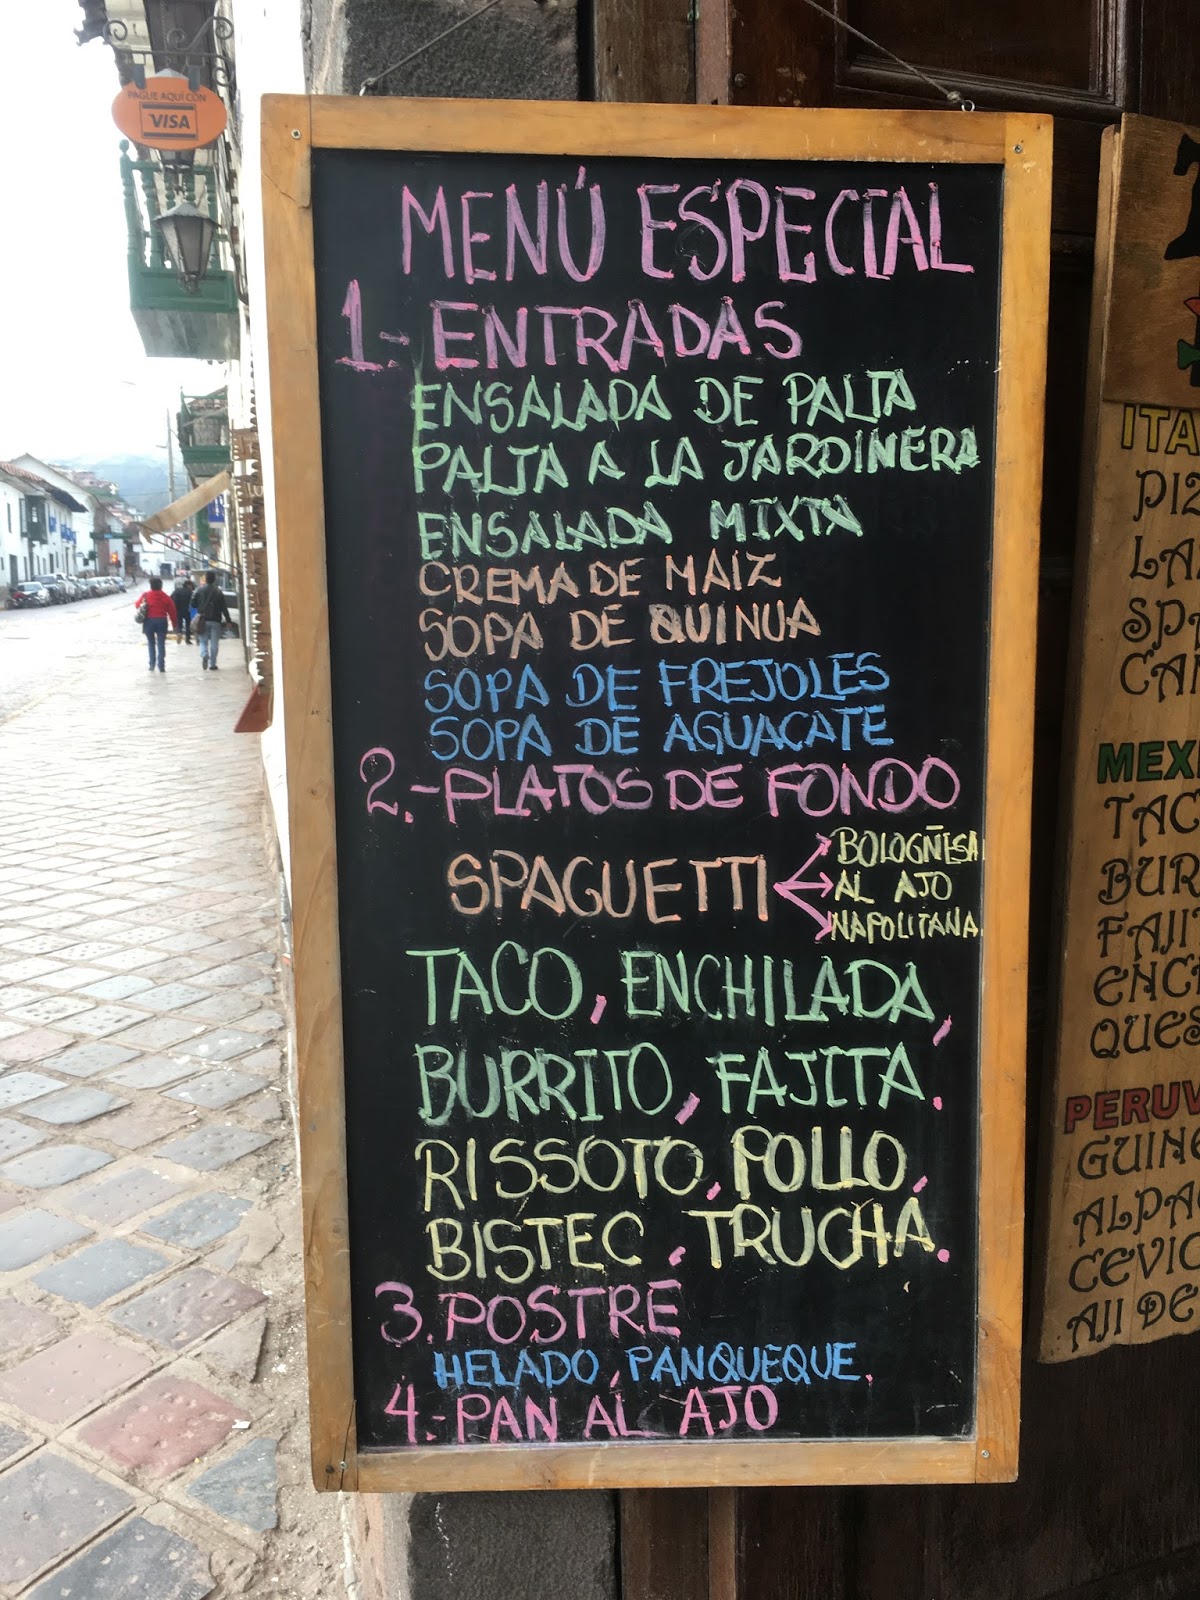 PAGUE AQUÍ CON
VISA
MENÚ ESPECIAL
1.- ENTRADAS
ENSALADA DE PALTA
PALTA A LA JARDINERA
ENSALADA MIXTA
CREMA DE MAIZ
SOPA DE QUINUA
SOPA DE FREJOLES
SOPA DE AGUACATE
2.- PLATOS DE FONDO
SPAGUETTI
BOLOGÑESA
AL AJO
NAPOLITANA
TACO, ENCHILADA,
BURRITO, FAJITA.
RISSOTO, POLLO,
BISTEC, TRUCHA.
3. POSTRE
HELADO, PANQUEQUE.
4.- PAN AL AJO